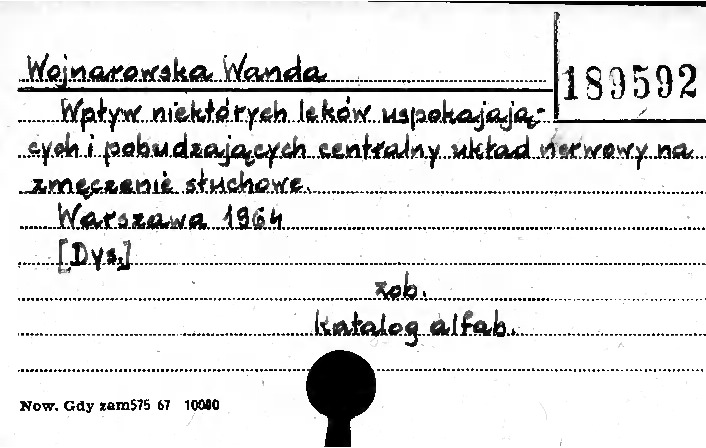 Wojnarowska Wanda
189592
Wpływ niektórych leków uspokajają-
cych i pobudzających centralny układ nerwowy na
zmęczenie słuchowe.
Warszawa 1964
[Dys.]
zob.
katalog alfab.
Now. Gdy zam575 67 10000